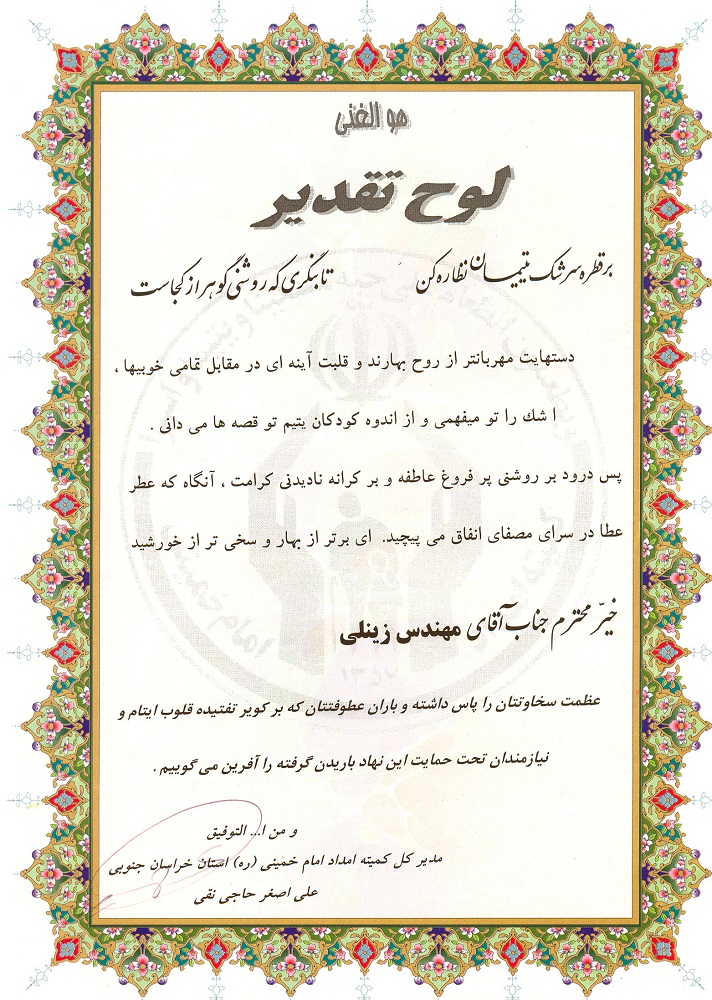 هو الغنی
لوح تقدیر
بر قطره سرشک یتیمان نظاره کن تا بنگری که روشنی گوهر از کجاست
دستهایت مهربانتر از روح بهارند و قلبت آینه ای در مقابل تمامی خوبیها ،
ا شك را تو میفهمی و از اندوه کودکان یتیم تو قصه ها می دانی .
پس درود بر روشنی پر فروغ عاطفه و بر کرانه نادیدنی کرامت ، آنگاه که عطر
عطا در سرای مصفای انفاق می پیچید. ای برتر از بهار و سخی تر از خورشید
خیّر محترم جناب آقای مهندس زینلی
عظمت سخاوتتان را پاس داشته و باران عطوفتتان که بر کویر تفتیده قلوب ایتام و
نیازمندان تحت حمایت این نهاد باریدن گرفته را آفرین می گوییم .
و من ا... التوفیق
مدیر کل کمیته امداد امام خمینی (ره) استان خراسان جنوبی
علی اصغر حاجی نقی
امام خمینی
۱۳۵۷